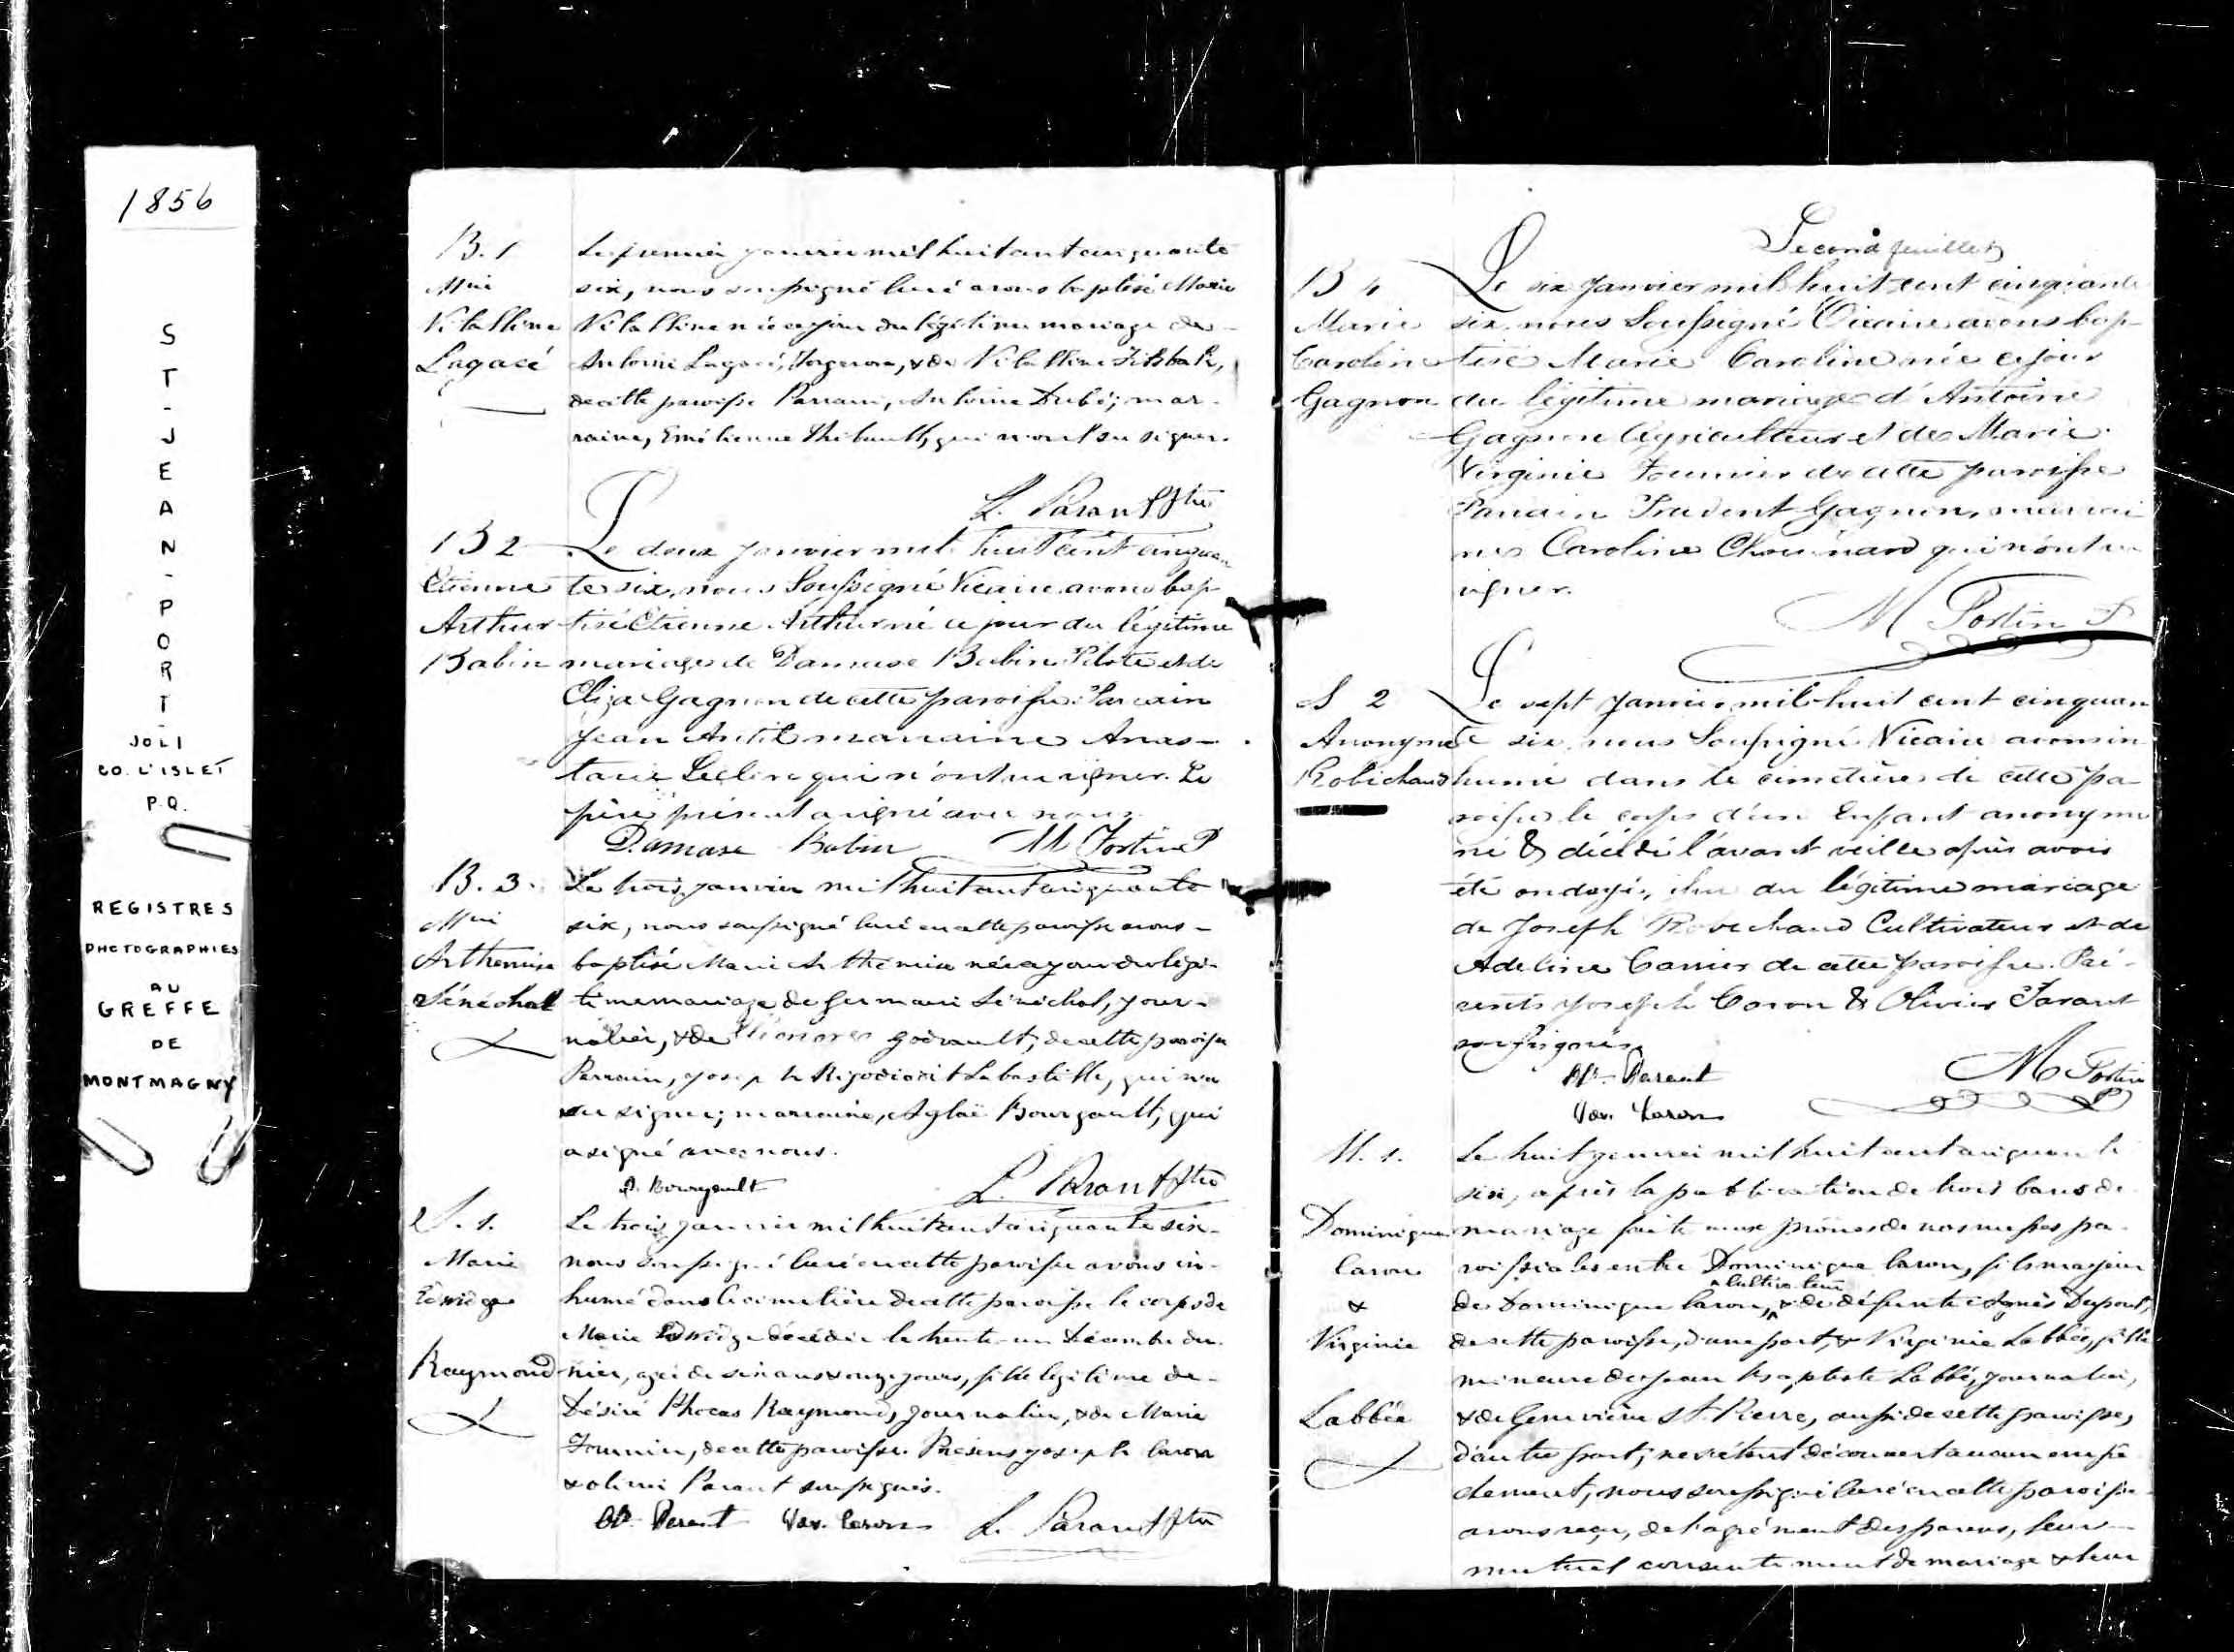 1856
ST-JEAN-PORT-
JOLI
CO. L'ISLET
P.Q.
REGISTRES
PHOTOGRAPHIES
AU
GREFFE
DE
MONTMAGNY
B. 1
Mie
Vitalline
Lagacé
Le premier janvier mil huit cent cinquante
six, nous soussigné curé avons baptisé Marie
Vitalline née ce jour du légitime mariage de
Antoine Lagacé, forgeron, & de Vitalline
de cette paroisse Parrain, Antoine Dubé; mar-
raine, Emélienne Thibault, qui n'ont su signer.
L. Parant Ptre
B 2
Etienne
Arthur
Babin
Le deux janvier mil huit cent cinquan
te six, nous Soussigné Vicaire avons bap
tisé Etienne Arthur né ce jour du légitime
mariage de Damase Babin Pilote et de
Eliza Gagnon de cette paroisse Parrain
Jean Antil marraine Anas-
tasie Leclerc qui n'ont su signer. Le
père présent a signé avec nous.
Damase Babin M Fortin P
B. 3.
Mie
Arthemise
Sénéchal
Le trois janvier mil huit cent cinquante
six, nous soussigné curé en cette paroisse avons
baptisé Marie Arthemise née ce jour du légi-
time mariage de Germain Sénéchal, jour-
nalier, & de Eléonore Godrault, de cette paroisse
Parrain, Joseph Labastille, qui n'a
su signer; marraine, Aglaé Bourgault, qui
a signé avec nous.
A. Bourgault L. Parant Ptre
S. 1.
Marie
Edwidge
Raymond
Le trois janvier mil huit cent cinquante six
nous soussigné curé en cette paroisse avons in-
humé dans le cimetière de cette paroisse le corps de
Marie Edwidge décédée le trente-un Décembre der-
nier, agée de six ans & onze jours, fille légitime de
Désiré Phocas Raymond, journalier, & de Marie
Fournier, de cette paroisse. Présens Joseph Caron
& Olivier Parant soussignés.
Ol. Parent Jos. Caron L. Parant Ptre
Second feuillet
B 4
Marie
Caroline
Gagnon
Le six Janvier mil huit cent cinquante
six nous Soussigné Vicaire avons bap-
tisé Marie Caroline née ce jour
du légitime mariage d'Antoine
Gagnon Agriculteur et de Marie
Virginie Fournier de cette paroisse
Parrain Prudent Gagnon, marrai
ne Caroline Chouinard qui n'ont su
signer.
M Fortin P
S 2
Anonyme
Robichaud
Le sept Janvier mil huit cent cinquan
te six, nous Soussigné Vicaire avons in
humé dans le cimetière de cette pa
roisse le corps d'un Enfant anonyme
né & décédé l'avant veille après avoir
été ondoyé, issu du légitime mariage
de Joseph Robichaud Cultivateur et de
Adeline Carrier de cette paroisse. Pré-
sents Joseph Caron & Olivier Parant
soussignés.
Ol. Parent
Jos. Caron
M Fortin
P
M. 1.
Dominique
Caron
&
Virginie
Labbée
Le huit janvier mil huit cent cinquante
six, après la publication de trois bans de
mariage faite aux prônes de nos messes pa-
roissiales entre Dominique Caron, fils majeur
de Dominique Caron, cultivateur & de défunte Agnès Dupont,
de cette paroisse, d'une part, & Virginie Labbée, fille
mineure de Jean Baptiste Labbé, journalier,
& de Geneviève St. Pierre, aussi de cette paroisse,
d'autre part; ne s'étant découvert aucun empê
chement, nous soussigné curé en cette paroisse
avons reçu, de l'agrément des parens, leur
mutuel consentement de mariage & leur